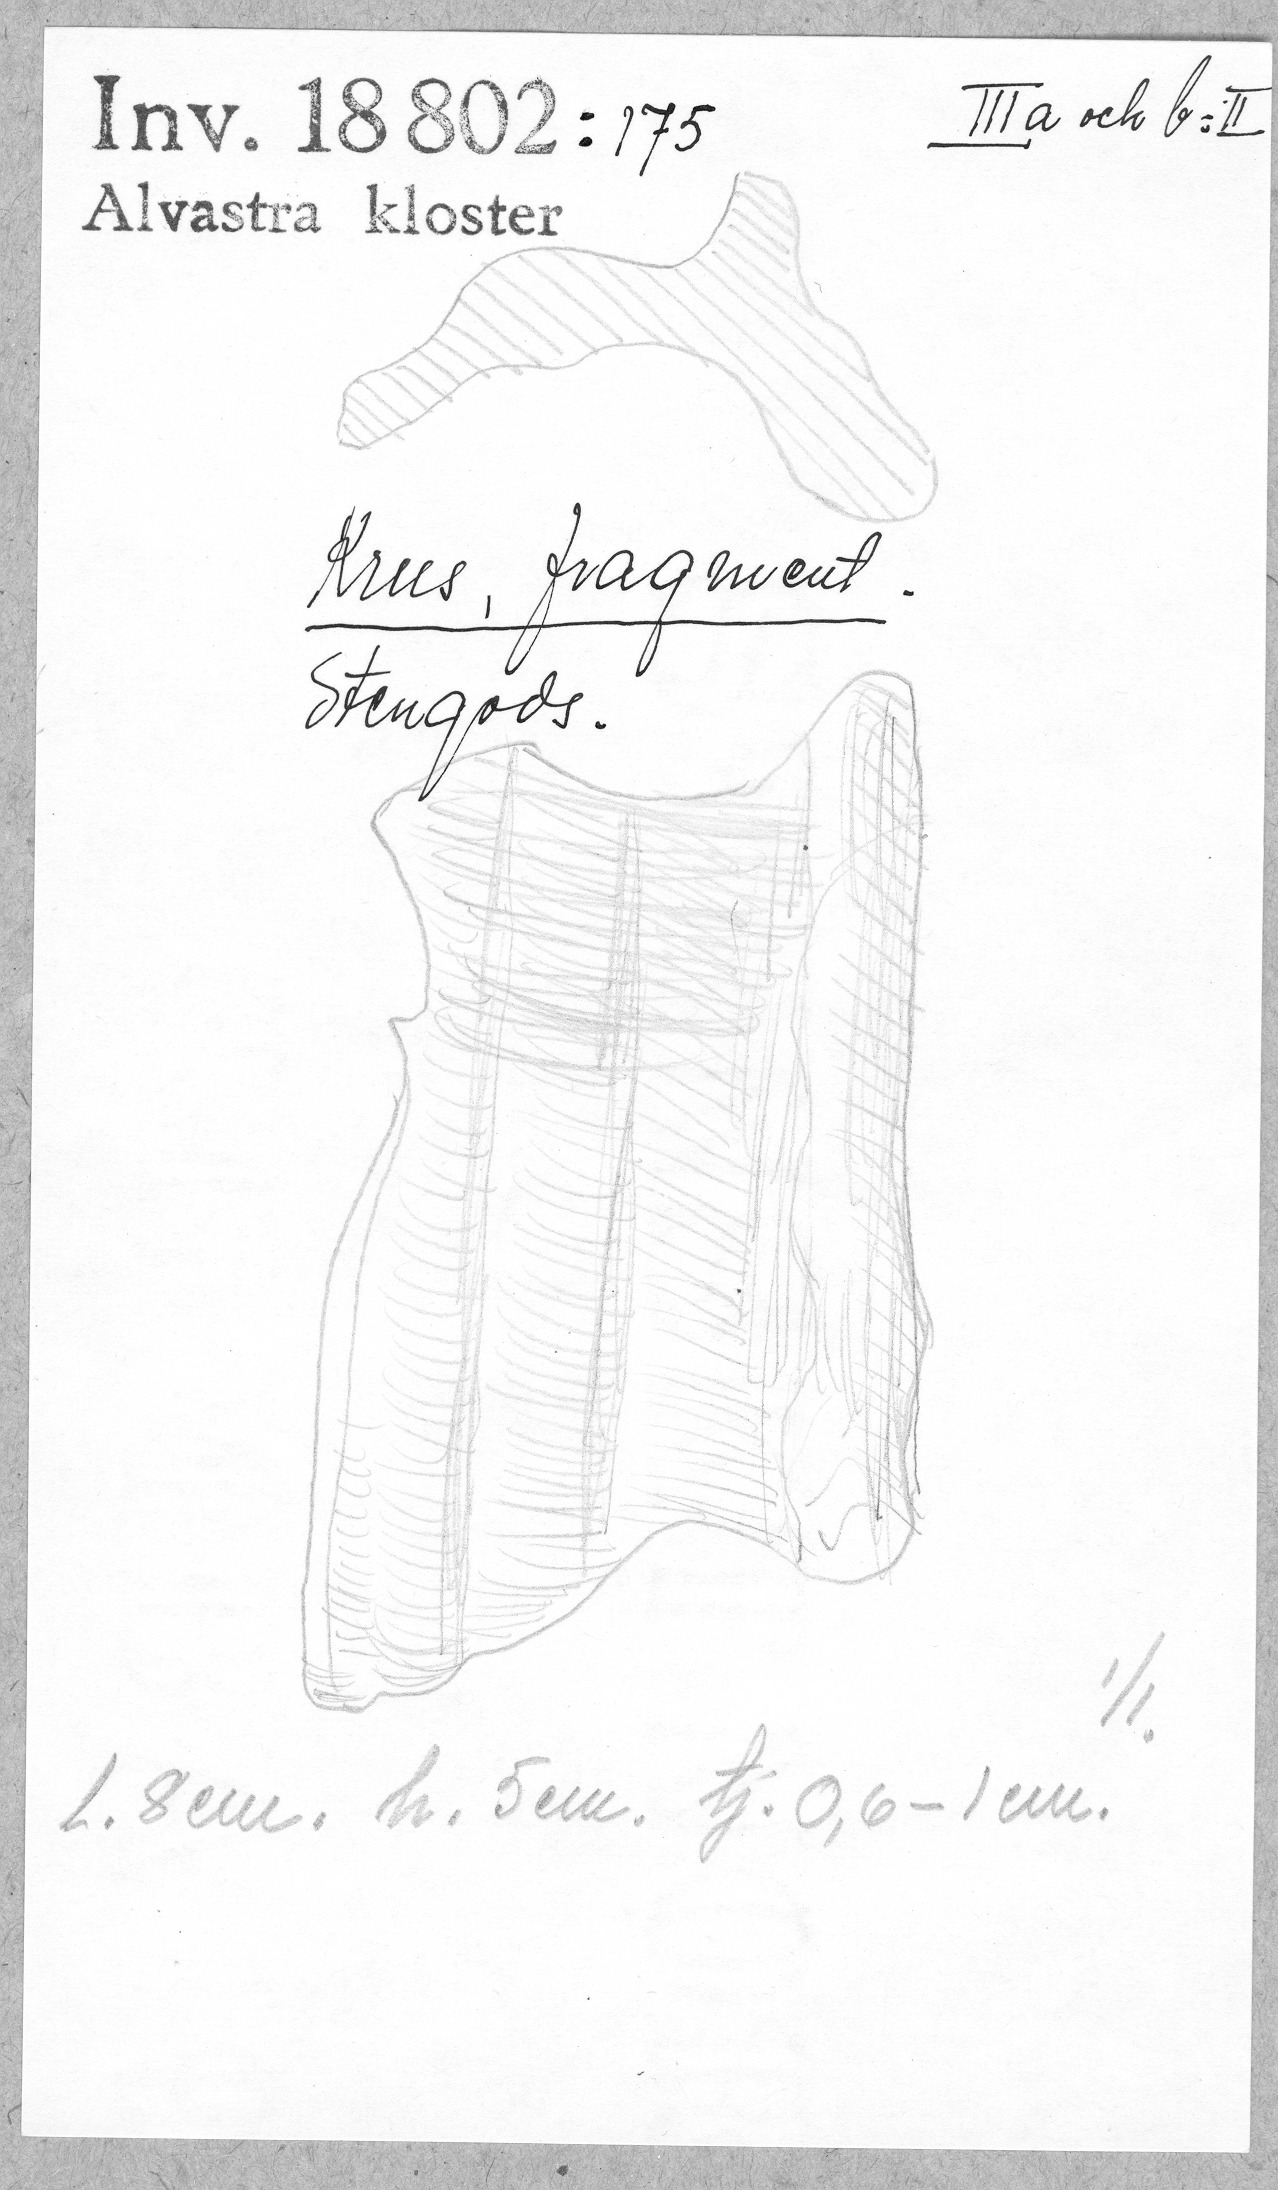 Inv. 18 802:175
IIIa och b:II
Alvastra kloster
Krus, fragment.
Stengods.
1/1.
L. 8 cm. h. 5 cm. tj. 0,6 – 1 cm.